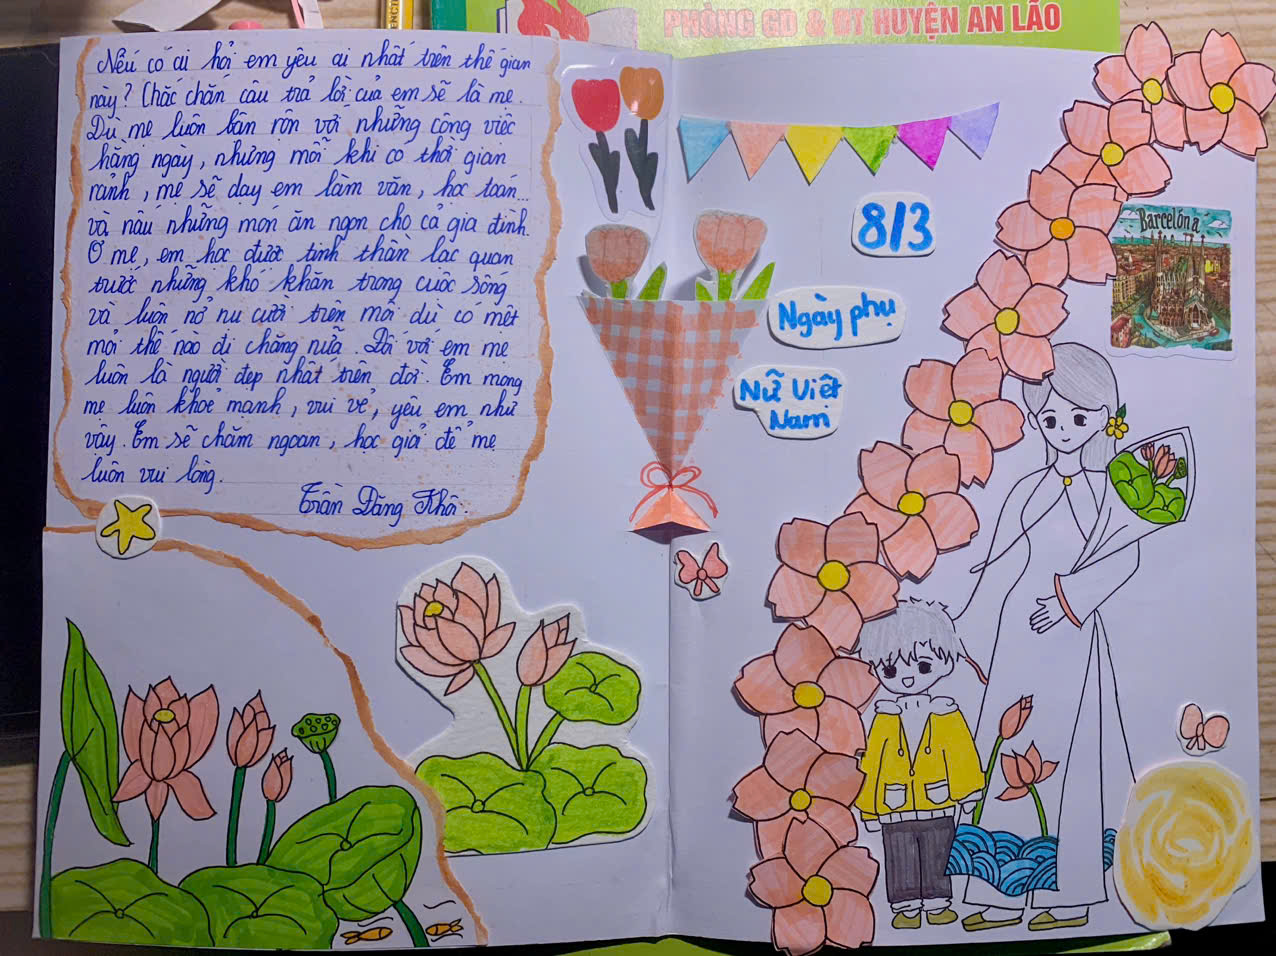 PHÒNG GD & ĐT HUYỆN AN LÃO
Nếu có ai hỏi em yêu ai nhất trên thế gian
này? Chắc chắn câu trả lời của em sẽ là mẹ.
Dù mẹ luôn bận rộn với những công việc
hằng ngày, nhưng mỗi khi có thời gian
rảnh, mẹ sẽ dạy em làm văn, học toán...
và nấu những món ăn ngon cho cả gia đình.
Ở mẹ, em học được tinh thần lạc quan
trước những khó khăn trong cuộc sống
và luôn nở nụ cười trên môi dù có mệt
mỏi thế nào đi chăng nữa. Đối với em mẹ
luôn là người đẹp nhất trên đời. Em mong
mẹ luôn khoẻ mạnh, vui vẻ, yêu em như
vậy. Em sẽ chăm ngoan, học giỏi để mẹ
luôn vui lòng.
Trần Đăng Khôi.
8/3
Ngày phụ
Nữ Việt
Nam
Barcelona